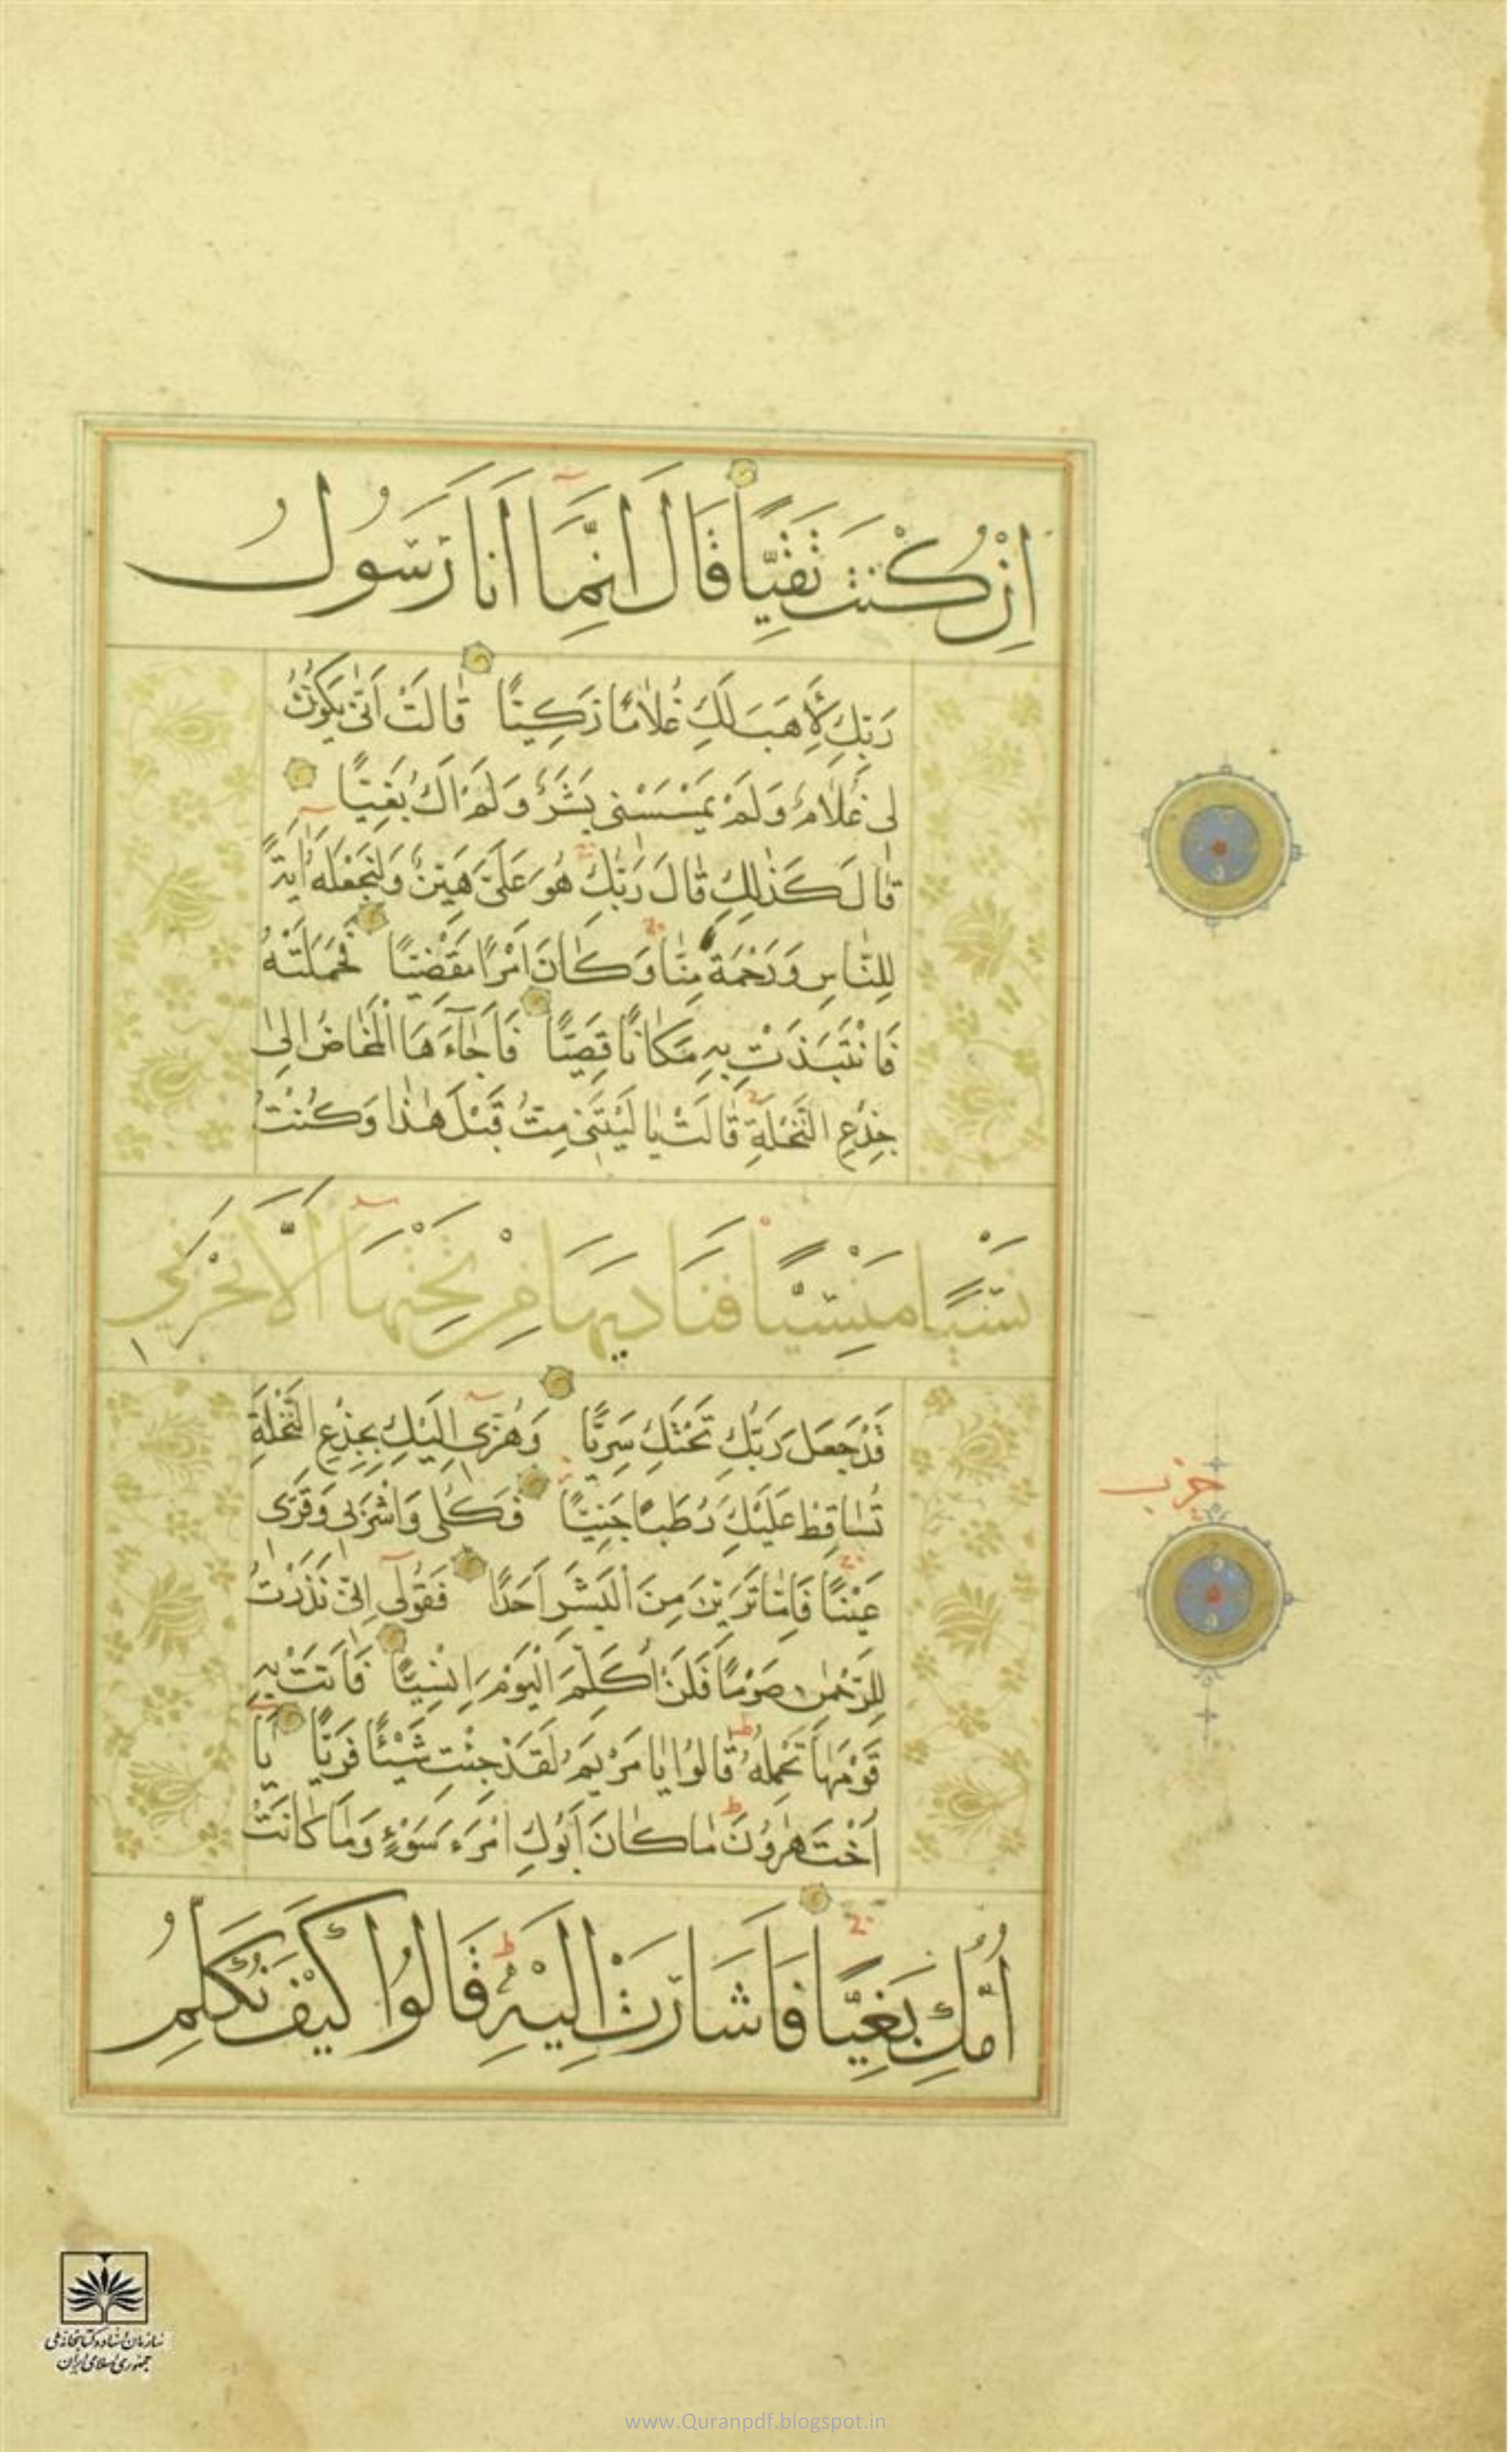 اِنْ كُنْتَ تَقِيًّا قَالَ اِنَّمَا اَنَا رَسُولُ
رَبِّكِ لِأَهَبَ لَكِ غُلَامًا زَكِيًّا قَالَتْ اَنّٰى يَكُونُ
لِى غُلَامٌ وَلَمْ يَمْسَسْنِى بَشَرٌ وَلَمْ اَكُ بَغِيًّا
قَالَ كَذٰلِكِ قَالَ رَبُّكِ هُوَ عَلَىَّ هَيِّنٌ وَلِنَجْعَلَهُ اٰيَةً
لِلنَّاسِ وَرَحْمَةً مِنَّا وَكَانَ اَمْرًا مَقْضِيًّا فَحَمَلَتْهُ
فَانْتَبَذَتْ بِهِ مَكَانًا قَصِيًّا فَاَجَاۤءَهَا الْمَخَاضُ اِلٰى
جِذْعِ النَّخْلَةِ قَالَتْ يَا لَيْتَنِى مِتُّ قَبْلَ هٰذَا وَكُنْتُ
نَسْيًا مَنْسِيًّا فَنَادٰيهَا مِنْ تَحْتِهَا اَلَّا تَحْزَنِى
قَدْ جَعَلَ رَبُّكِ تَحْتَكِ سَرِيًّا وَهُزِّى اِلَيْكِ بِجِذْعِ النَّخْلَةِ
تُسَاقِطْ عَلَيْكِ رُطَبًا جَنِيًّا فَكُلِى وَاشْرَبِى وَقَرِّى
عَيْنًا فَاِمَّا تَرَيِنَّ مِنَ الْبَشَرِ اَحَدًا فَقُولِى اِنِّى نَذَرْتُ
لِلرَّحْمٰنِ صَوْمًا فَلَنْ اُكَلِّمَ الْيَوْمَ اِنْسِيًّا فَاَتَتْ بِهِ
قَوْمَهَا تَحْمِلُهُ قَالُوا يَا مَرْيَمُ لَقَدْ جِئْتِ شَيْئًا فَرِيًّا يَا
اُخْتَ هٰرُونَ مَا كَانَ اَبُوكِ امْرَءَ سَوْءٍ وَمَا كَانَتْ
اُمُّكِ بَغِيًّا فَاَشَارَتْ اِلَيْهِ قَالُوا كَيْفَ نُكَلِّمُ
حزب
سازمان اسناد و کتابخانه ملی
جمهوری اسلامی ایران
www.Quranpdf.blogspot.in